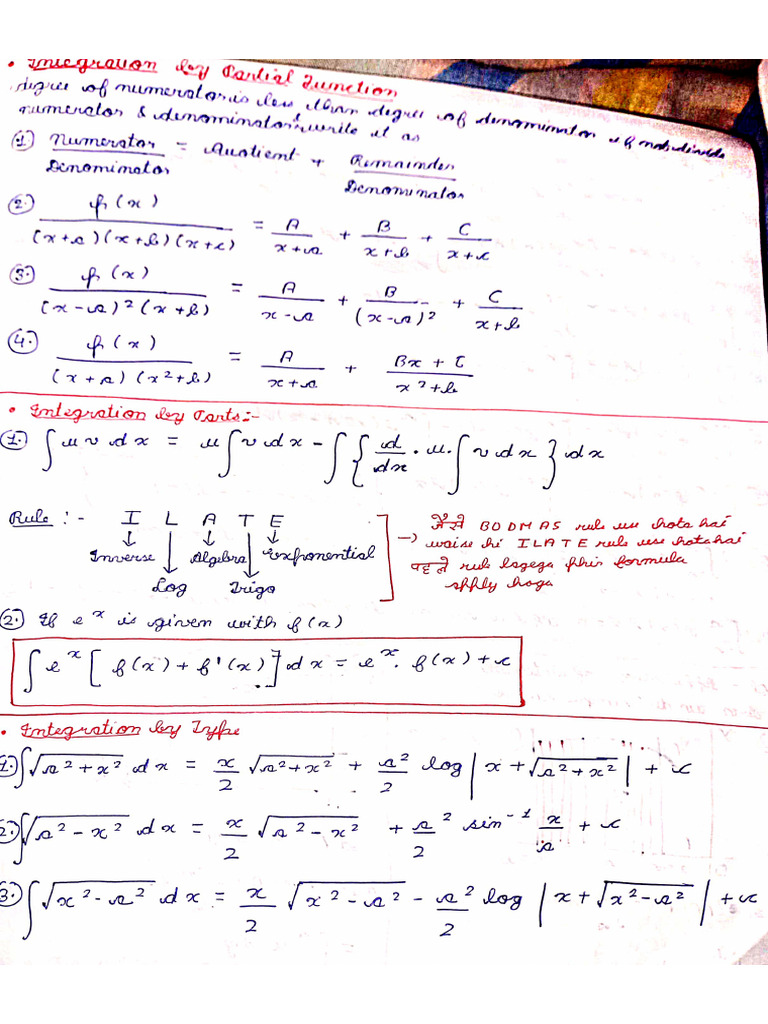 • Integration by Partial Function
degree of numerator is less than degree of denominator if not divide
numerator & denominator & write it as
① Numerator / Denominator = Quotient + Remainder / Denominator
②. f(x) / (x+a)(x+b)(x+c) = A / x+a + B / x+b + C / x+c
③. f(x) / (x-a)²(x+b) = A / x-a + B / (x-a)² + C / x+b
④. f(x) / (x+a)(x²+b) = A / x+a + Bx + C / x²+b
• Integration by Parts:-
①. ∫ u v dx = u ∫ v dx - ∫ { d/dx . u . ∫ v dx } dx
Rule :- I L A T E
Inverse Algebra Exponential
Log Trigo
जैसे BODMAS rule use hota hai
→ waise hi ILATE rule use hota hai
पहले rule lagega phir formula
apply hoga
②. If eˣ is given with f(x)
∫ eˣ [ f(x) + f'(x) ] dx = eˣ. f(x) + c
• Integration by Type
①. ∫ √a²+x² dx = x/2 √a²+x² + a²/2 log | x + √a²+x² | + c
②. ∫ √a²-x² dx = x/2 √a²-x² + a²/2 sin⁻¹ x/a + c
③. ∫ √x²-a² dx = x/2 √x²-a² - a²/2 log | x + √x²-a² | + c